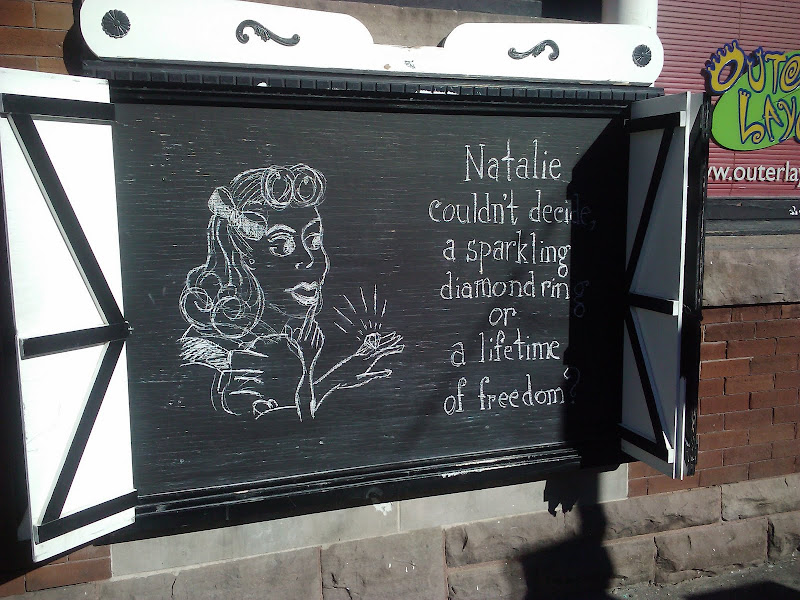 Natalie
couldn't decide,
a sparkling
diamond ring
or
a lifetime
of freedom?
OUTE
LAY
w.outerla